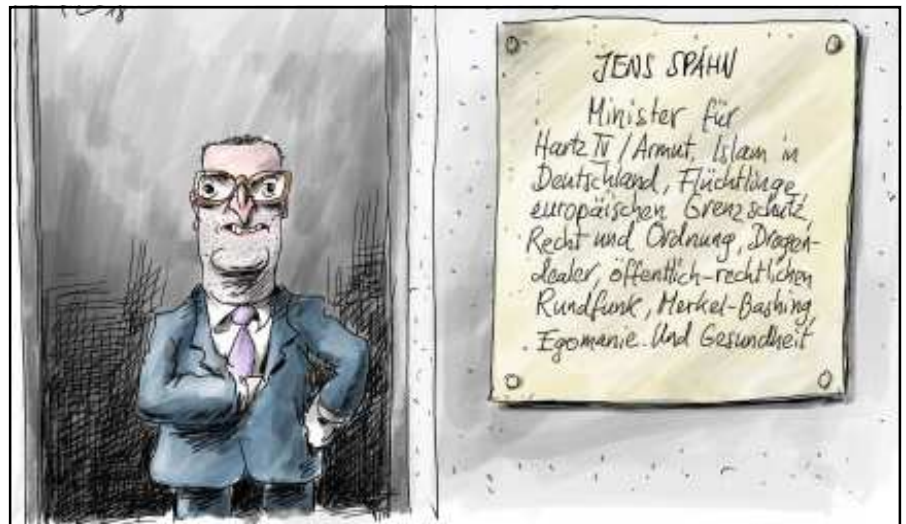 18
JENS SPAHN
Minister für
Hartz IV / Armut, Islam in
Deutschland, Flüchtlinge
europäischen Grenzschutz,
Recht und Ordnung, Drogen-
dealer, öffentlich-rechtlichen
Rundfunk, Merkel-Bashing,
Egomanie. Und Gesundheit